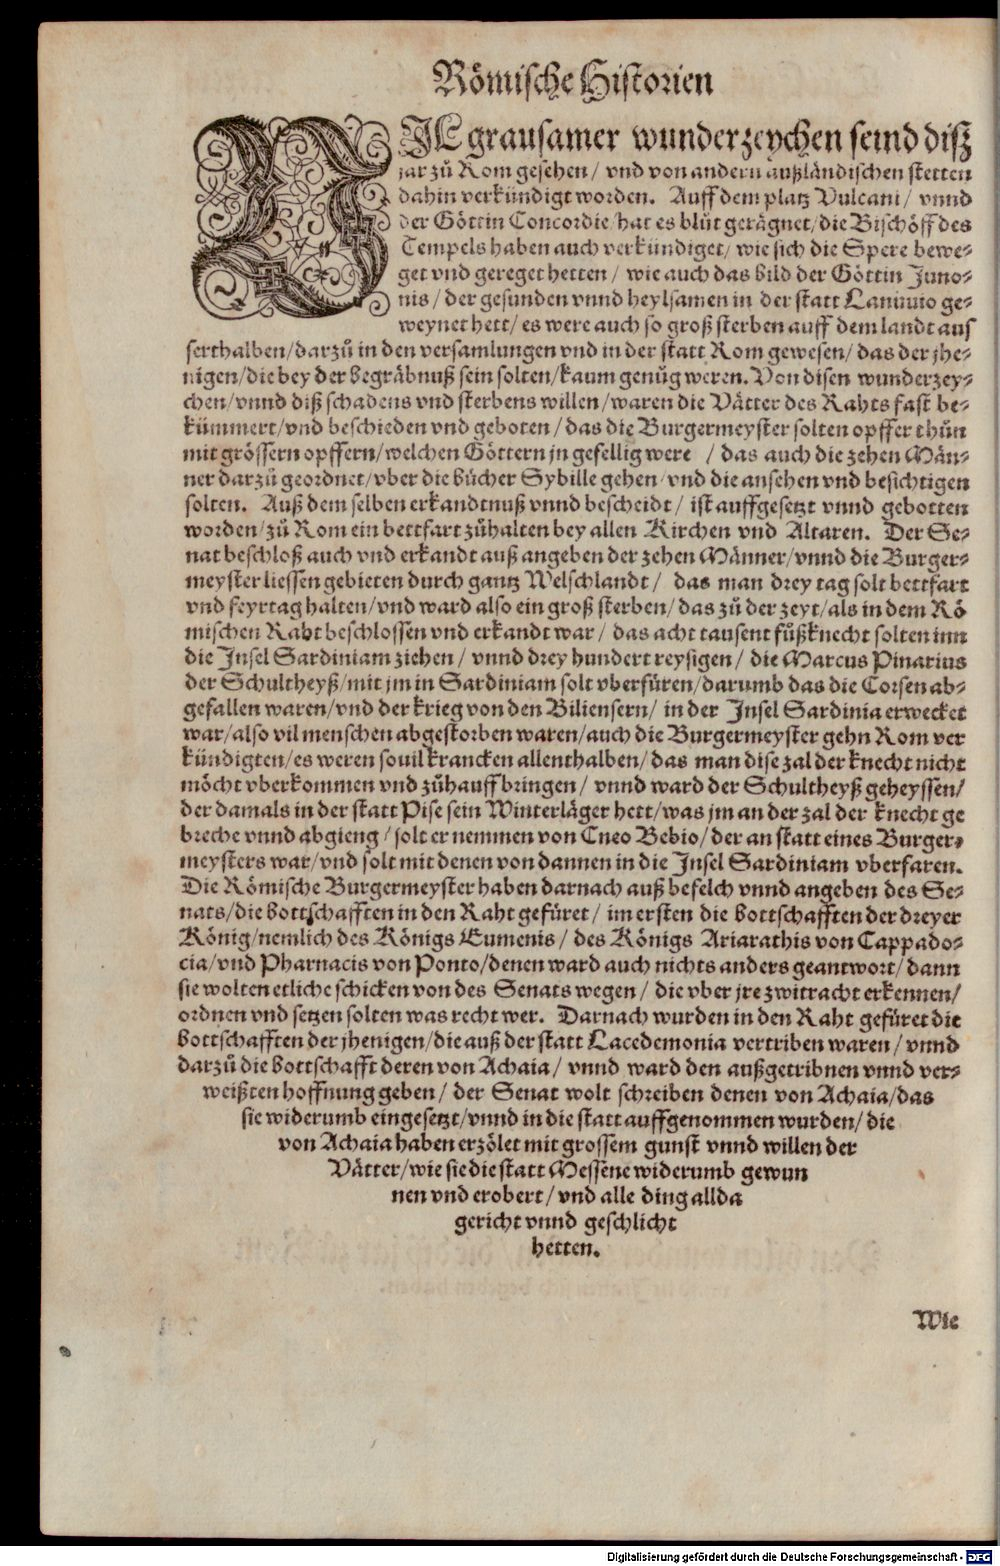 Römische Historien
VIL grausamer wunderzeychen seind disz
jar zů Rom gesehen / vnd von andern außländischen stetten
dahin verkündigt worden. Auff dem platz Vulcani / vnnd
der Göttin Concordie / hat es blůt gerägnet / die Bischöff des
Tempels haben auch verkündiget / wie sich die Spere bewe-
get vnd gereget hetten / wie auch das bild der Göttin Juno-
nis / der gesunden vnnd heylsamen in der statt Lanuuio ge-
weynet hett / es were auch so groß sterben auff dem landt aus
serthalben / darzů in den versamlungen vnd in der statt Rom gewesen / das der jhe-
nigen / die bey der begräbnuß sein solten / kaum genůg weren. Von disen wunderzey-
chen / vnnd diß schadens vnd sterbens willen / waren die Vätter des Rahts fast be-
kümmert / vnd beschieden vnd geboten / das die Burgermeyster solten opffer thůn
mit grössern opffern / welchen Göttern jn gefellig were / das auch die zehen Män-
ner darzů geordnet / vber die bücher Sybille gehen / vnd die ansehen vnd besichtigen
solten. Auß dem selben erkandtnuß vnnd bescheidt / ist auffgesetzt vnnd gebotten
worden / zů Rom ein bettfart zůhalten bey allen Kirchen vnd Altaren. Der Se-
nat beschloß auch vnd erkandt auß angeben der zehen Männer / vnnd die Burger-
meyster liessen gebieten durch gantz Welschlandt / das man drey tag solt bettfart
vnd feyrtag halten / vnd ward also ein groß sterben / das zů der zeyt / als in dem Rö
mischen Raht beschlossen vnd erkandt war / das acht tausent fůßknecht solten inn
die Insel Sardiniam ziehen / vnnd drey hundert reysigen / die Marcus Pinarius
der Schultheyß / mit jm in Sardiniam solt vberfüren / darumb das die Corsen ab-
gefallen waren / vnd der krieg von den Biliensern / in der Insel Sardinia erwecket
war / also vil menschen abgestorben waren / auch die Burgermeyster gehn Rom ver
kündigten / es weren souil krancken allenthalben / das man dise zal der knecht nicht
möcht vberkommen vnd zůhauff bringen / vnnd ward der Schultheyß geheyssen /
der damals in der statt Pise sein Winterläger hett / was jm an der zal der knecht ge
breche vnnd abgieng / solt er nemmen von Cneo Bebio / der an statt eines Burger-
meysters war / vnd solt mit denen von dannen in die Insel Sardiniam vberfaren.
Die Römische Burgermeyster haben darnach auß befelch vnnd angeben des Se-
nats / die bottschafften in den Raht gefüret / im ersten die bottschafften der dreyer
König / nemlich des Königs Eumenis / des Königs Ariarathis von Cappado-
cia / vnd Pharnacis von Ponto / denen ward auch nichts anders geantwort / dann
sie wolten etliche schicken von des Senats wegen / die vber jre zwitracht erkennen /
ordnen vnd setzen solten was recht wer. Darnach wurden in den Raht gefüret die
bottschafften der jhenigen / die auß der statt Lacedemonia vertriben waren / vnnd
darzů die bottschafft deren von Achaia / vnnd ward den außgetribnen vnnd ver-
weißten hoffnung geben / der Senat wolt schreiben denen von Achaia / das
sie widerumb eingesetzt / vnnd in die statt auffgenommen wurden / die
von Achaia haben erzölet mit grossem gunst vnnd willen der
Vätter / wie sie die statt Messene widerumb gewun
nen vnd erobert / vnd alle ding allda
gericht vnnd geschlicht
hetten.
Wie
Digitalisierung gefördert durch die Deutsche Forschungsgemeinschaft - DFG